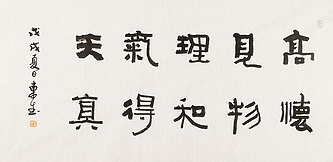 高懷
見物
理和
氣得
天真
戊戌夏日東生